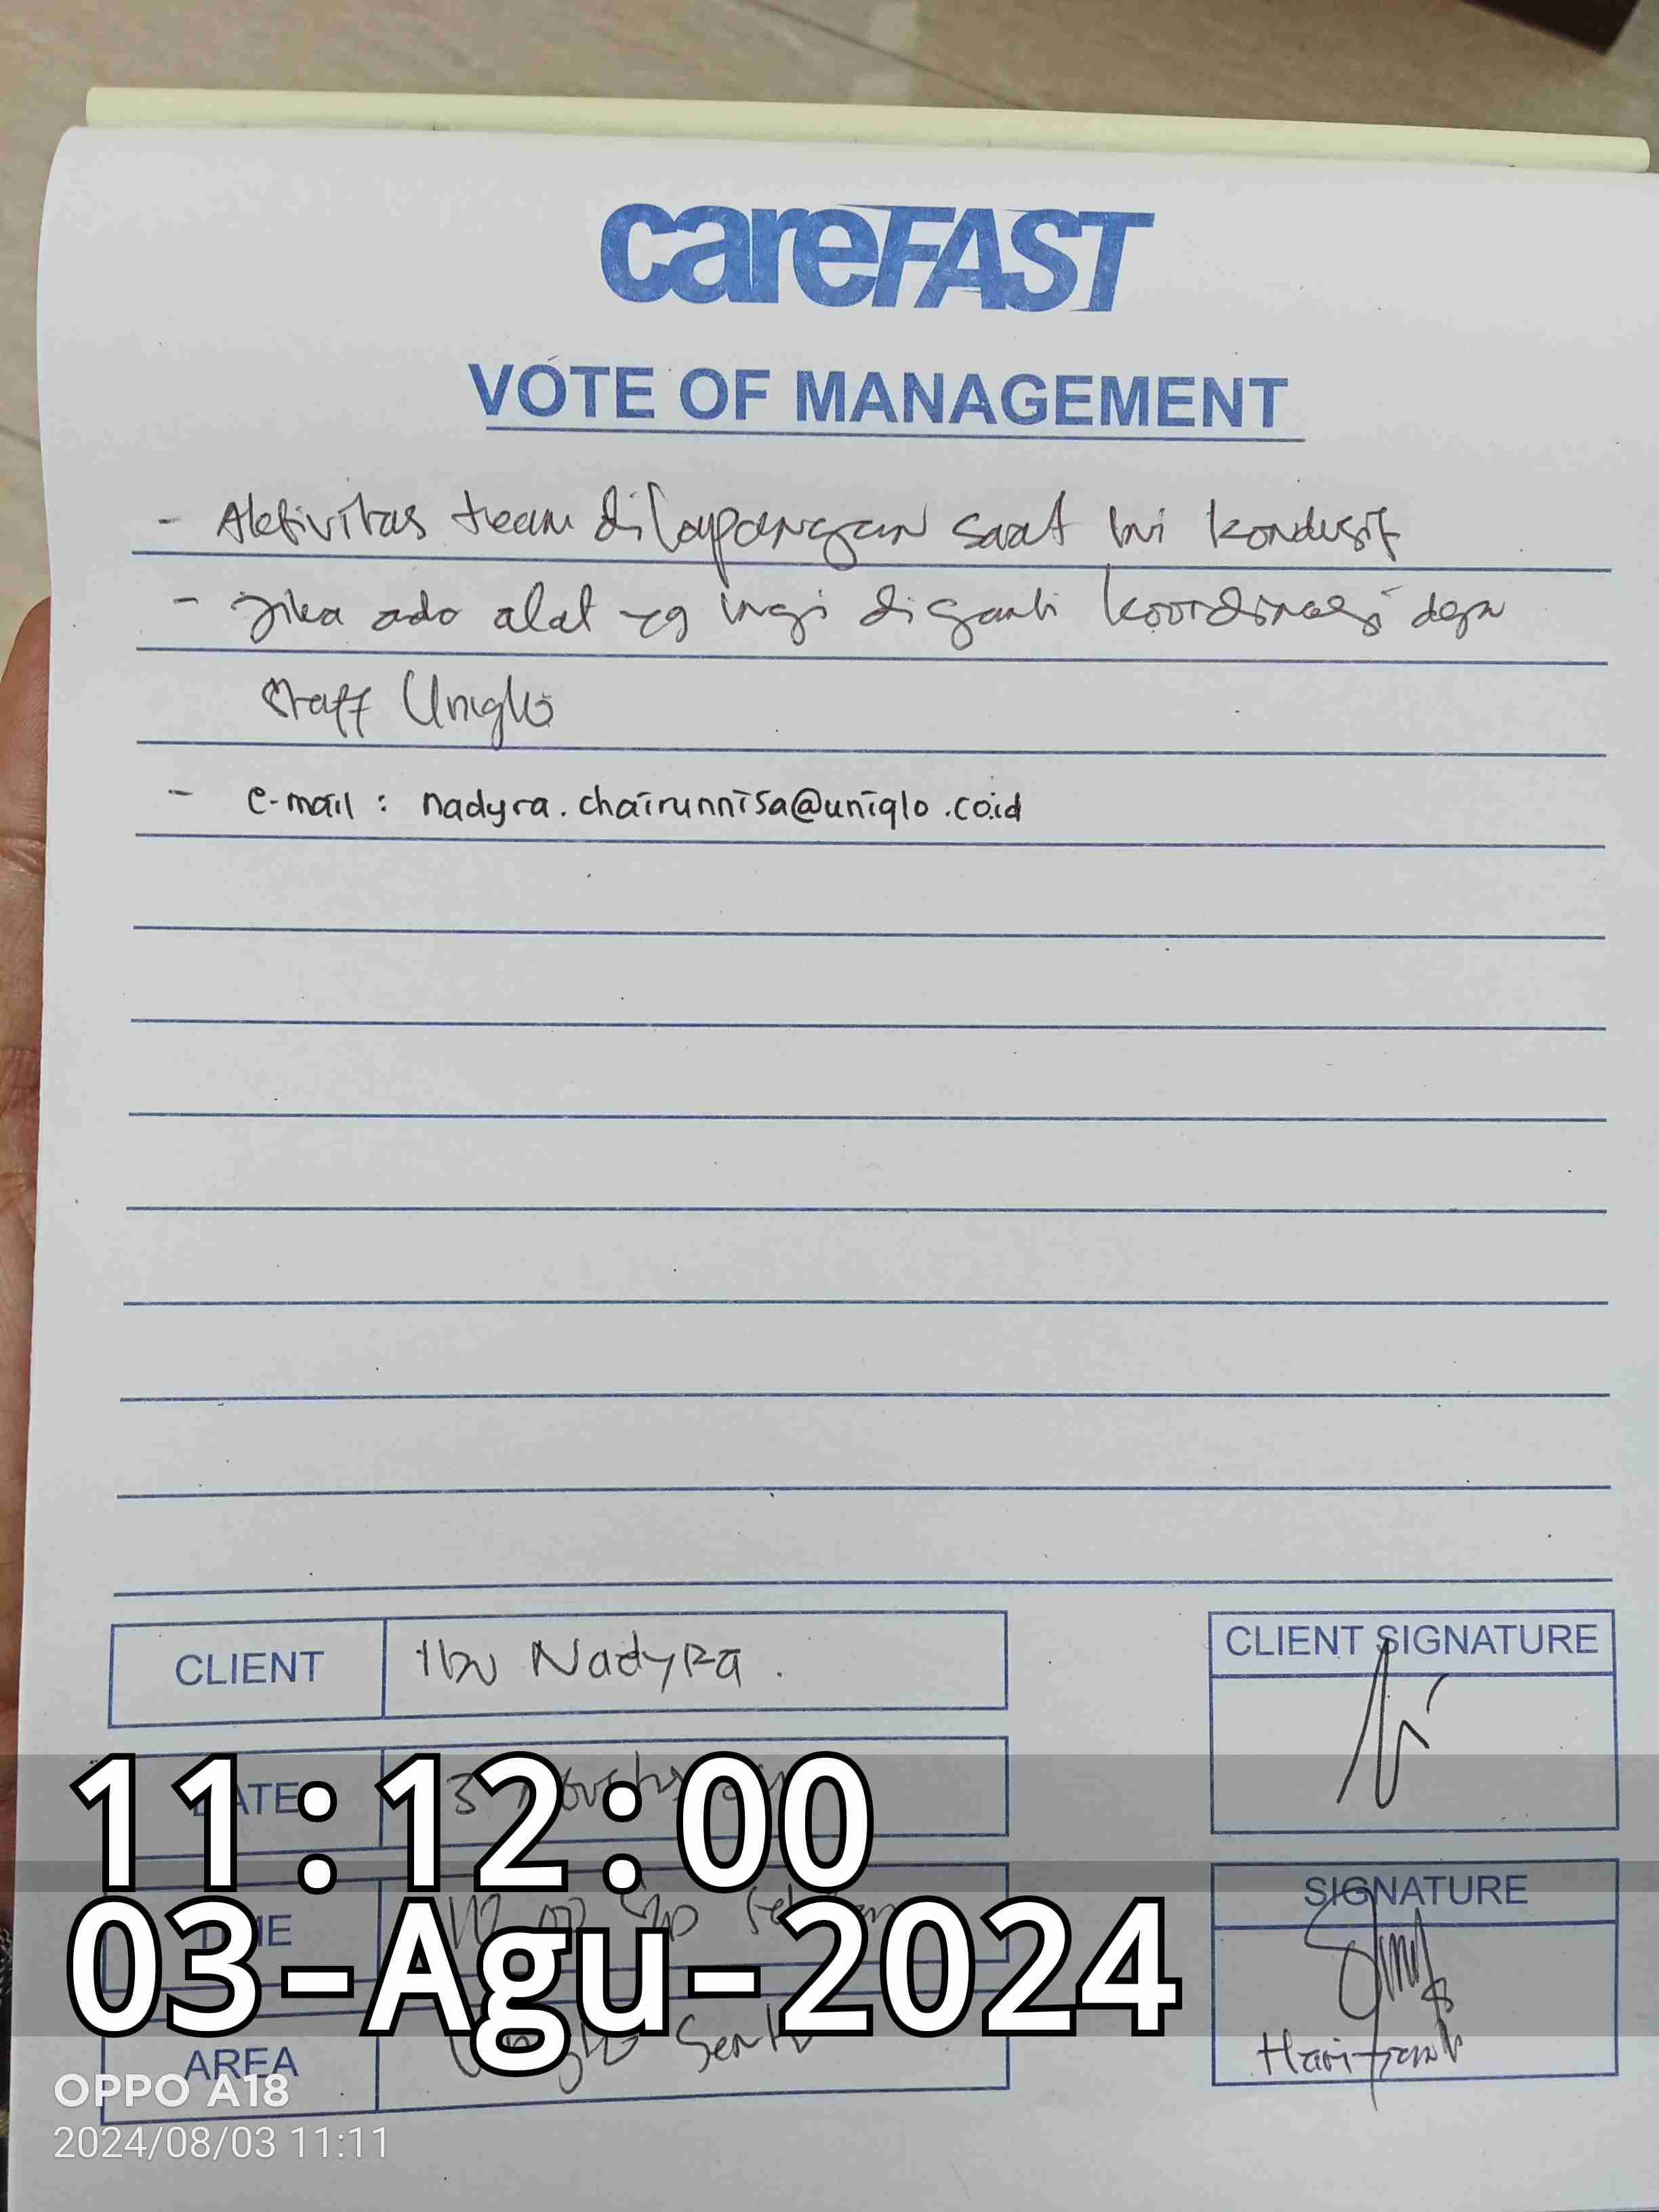 careFAST
VOTE OF MANAGEMENT
- Aktivitas team dilapangan saat ini kondusif
- Jika ada alat yg ingi diganti koordinasi dgn
Staff Uniqlo
- e-mail : nadyra.chairunnisa@uniqlo.co.id
CLIENT Ibu Nadyra.
CLIENT SIGNATURE
DATE 3 Agustus
11:12:00
TIME
SIGNATURE
03-Agu-2024
AREA Uniqlo
OPPO A18
2024/08/03 11:11